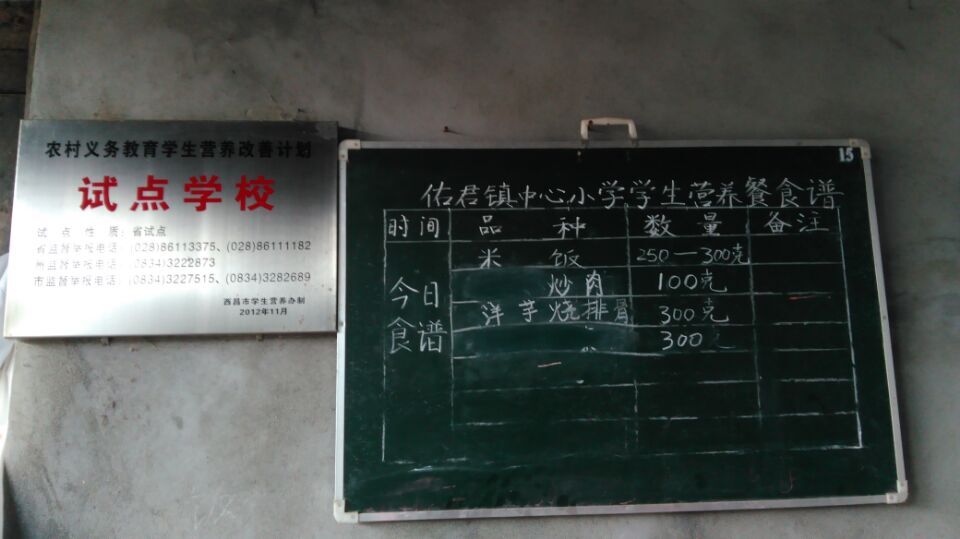 农村义务教育学生营养改善计划
试点学校
试 点 性 质：省试点
省监督举报电话：(028)86113375、(028)86111182
州监督举报电话：(0834)3222873
市监督举报电话：(0834)3227515、(0834)3282689
西昌市学生营养办制
2012年11月
15
佑君镇中心小学学生营养餐食谱
时间 品 种 数 量 备注
今日食谱
米 饭 250—300克
炒肉 100克
洋芋烧排骨 300克
300克